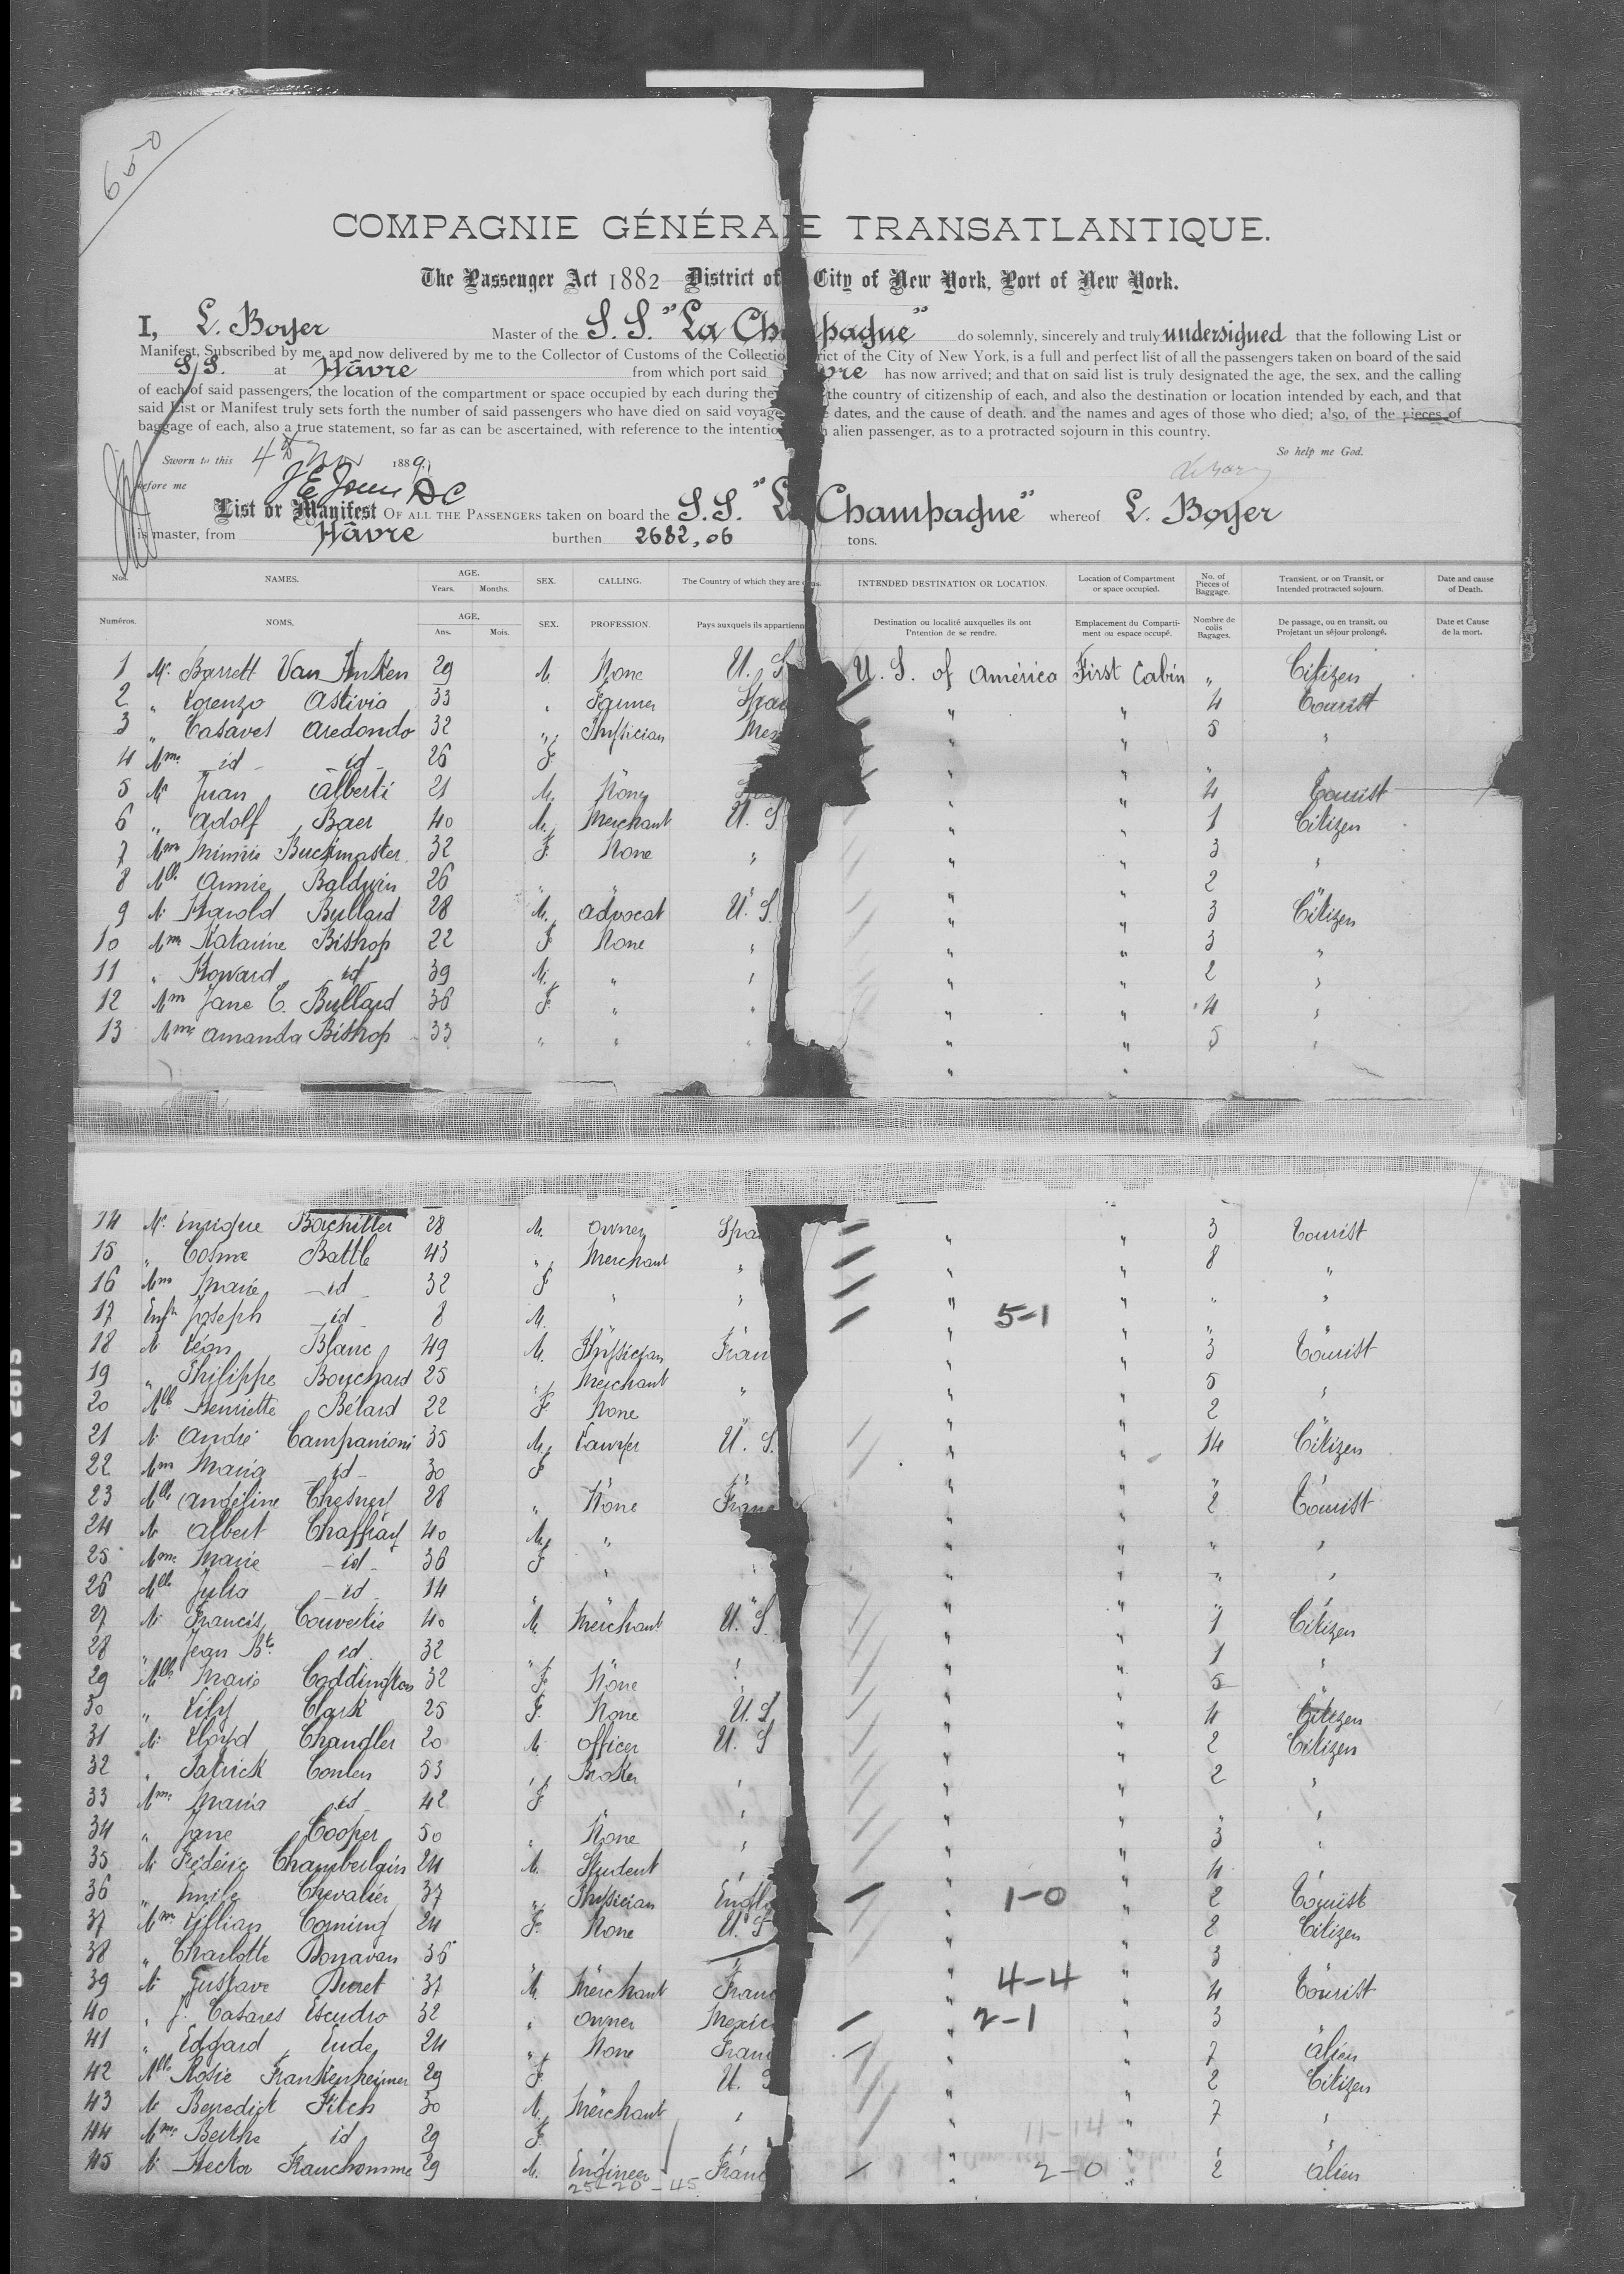 650
COMPAGNIE GÉNÉRALE TRANSATLANTIQUE.
The Passenger Act 1882 District of City of New York, Port of New York.
I, L. Boyer Master of the S.S. "La Champagne" do solemnly, sincerely and truly undersigned that the following List or
Manifest, Subscribed by me and now delivered by me to the Collector of Customs of the Collectio rict of the City of New York, is a full and perfect list of all the passengers taken on board of the said
S/S. at Hâvre from which port said vre has now arrived; and that on said list is truly designated the age, the sex, and the calling
of each of said passengers, the location of the compartment or space occupied by each during the the country of citizenship of each, and also the destination or location intended by each, and that
said List or Manifest truly sets forth the number of said passengers who have died on said voyage dates, and the cause of death, and the names and ages of those who died; also, of the pieces of
baggage of each, also a true statement, so far as can be ascertained, with reference to the intentio n alien passenger, as to a protracted sojourn in this country.
So help me God.
Sworn to this 4th 1889
before me
List or Manifest OF ALL THE PASSENGERS taken on board the S.S. "La Champagne" whereof L. Boyer
is master, from Hâvre burthen 2682,06 tons.
Nos. NAMES. AGE. Years. Months. SEX. CALLING. The Country of which they are INTENDED DESTINATION OR LOCATION. Location of Compartment or space occupied. No. of Pieces of Baggage. Transient, or on Transit, or Intended protracted sojourn. Date and cause of Death.
Numéros. NOMS. AGE. Ans. Mois. SEX. PROFESSION. Pays auxquels ils appartienn Destination ou localité auxquelles ils ont l'intention de se rendre. Emplacement du Comparti-ment ou espace occupé. Nombre de colis Bagages. De passage, ou en transit, ou Projetant un séjour prolongé. Date et Cause de la mort.
1 Mr. Barrett Van 29 M. None U. S U. S. of América First Cabin " Citizen
2 " Lorenzo Astivia 33 " Spa " " 4 Tourist
3 " Casaves Aredondo 32 " Physician Mex " " 5 "
4 Mme id id 26 F. " " "
5 Mr Juan Alberti 21 M. None " " 4 Tourist
6 " Adolf Baer 40 M. Merchant U. S " " 1 Citizen
7 Mme Minnie Buckmaster 32 F. None " " " 3 "
8 Mlle Annie Baldwin 26 " " " " 2
9 Mr Harold Bullard 28 M. Advocat U. S. " " 3 Citizen
10 Mme Katarine Bishop 22 F. None " " " 3 "
11 " Howard id 39 M. " " " " 2 "
12 Mme Jane C. Bullard 36 F. " " " " 4 "
13 Mme Amanda Bishop 33 " " " " " 5 "
14 Mr. Enrique Bachiller 28 M. Owner Spa " " 3 Tourist
15 " Cosme Battle 43 " Merchant " " " 8 "
16 Mme Marie id 32 F. " " " " " "
17 Enft Joseph id 8 M. " 5-1 " "
18 Mr Léon Blanc 49 M. Physician Fran " " 3 Tourist
19 " Philippe Bouchard 25 " Merchant " " " 5 "
20 Mlle Henriette Bélard 22 F. None " " 2
21 Mr André Campanioni 35 M. Lawyer U. S. " " 14 Citizen
22 Mme Maria id 30 F. " " "
23 Mlle Angéline Chesney 28 " None Franc " " 2 Tourist
24 Mr Albert Chaffray 40 M. " " " " "
25 Mme Marie id 36 F. " " " " "
26 Mlle Julia id 14 " " " "
27 Mr Francis Couvertie 40 M. Merchant U. S. " " 1 Citizen
28 " Jean Bte id 32 " " " " 1 "
29 Mlle Marie Coddington 32 F. None " " " 5
30 " Lily Clark 25 F. None U. S " " 4 Citizen
31 Mr Lloyd Chandler 20 M. Officer U. S " " 2 Citizen
32 " Patrick Conlen 53 " Broker " " " 2 "
33 Mme Maria id 42 F. " " " " "
34 " Jane Cooper 50 " None " " " 3 "
35 Mr Fréderic Chamberlain 24 M. Student " " " 4
36 " Emile Chevalier 37 " Physician Engla " 1-0 " 2 Tourist
37 Mme Lillian Coming 24 F. None U. S " " 2 Citizen
38 " Charlotte Donavan 36 " " " " 3
39 Mr Gustave Duret 37 M. Merchant Franc " 4-4 " 4 Tourist
40 " J. Casares Escudro 32 " Owner Mexic " 2-1 " 3
41 " Edgard Eude 24 " None Franc " " 7 Alien
42 Mlle Rosie Frankenheimer 29 F. U. S " " 2 Citizen
43 Mr Benedict Fitch 30 M. Merchant " " " 7 "
44 Mme Berthe id 29 F. " 11-14 "
45 Mr Hector Franchomme 29 M. Engineer Franc " 2-0 " 2 Alien
25-20-45